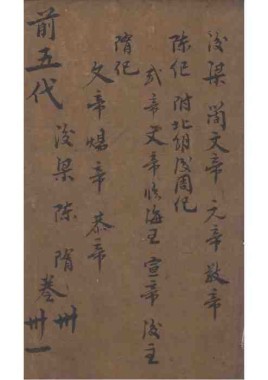 後梁 簡文帝 元帝 敬帝
陳紀 附北朝後周紀
武帝 文帝 臨海王 宣帝 後主
隋紀
文帝 煬帝 恭帝
前五代 後梁 陳 隋 卷 卅 卅一